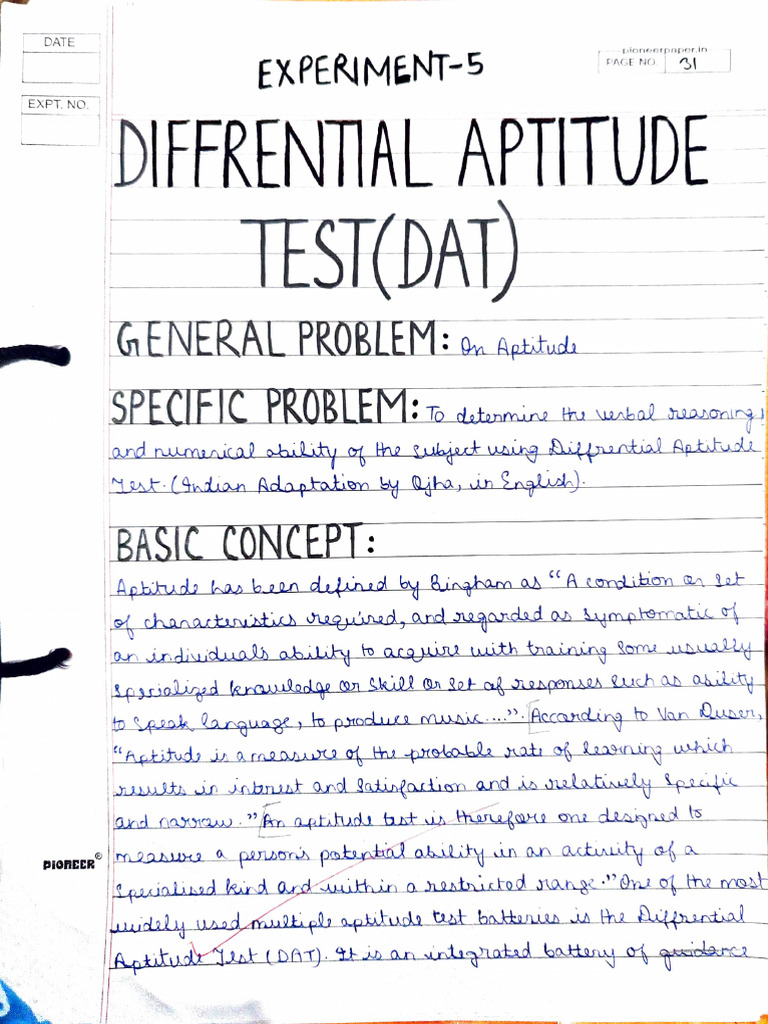 DATE
EXPT. NO.
pioneerpaper.in
PAGE NO. 31
EXPERIMENT-5
DIFFRENTIAL APTITUDE
TEST(DAT)
GENERAL PROBLEM: On Aptitude
SPECIFIC PROBLEM: To determine the verbal reasoning,
and numerical ability of the subject using Diffrential Aptitude
Test. (Indian Adaptation by Ojha, in English).
BASIC CONCEPT:
Aptitude has been defined by Bingham as "A condition or set
of characteristics required, and regarded as symptomatic of
an individuals ability to acquire with training some usually
specialized knowledge or skill or set of responses such as ability
to speak language, to produce music....". According to Van Duser,
"Aptitude is a measure of the probable rate of learning which
results in interest and satisfaction and is relatively specific
and narrow." An aptitude test is therefore one designed to
measure a person's potential ability in an activity of a
specialised kind and within a restricted range." One of the most
widely used multiple aptitude test batteries is the Diffrential
Aptitude Test (DAT). It is an integrated battery of guidance
PIONEER®